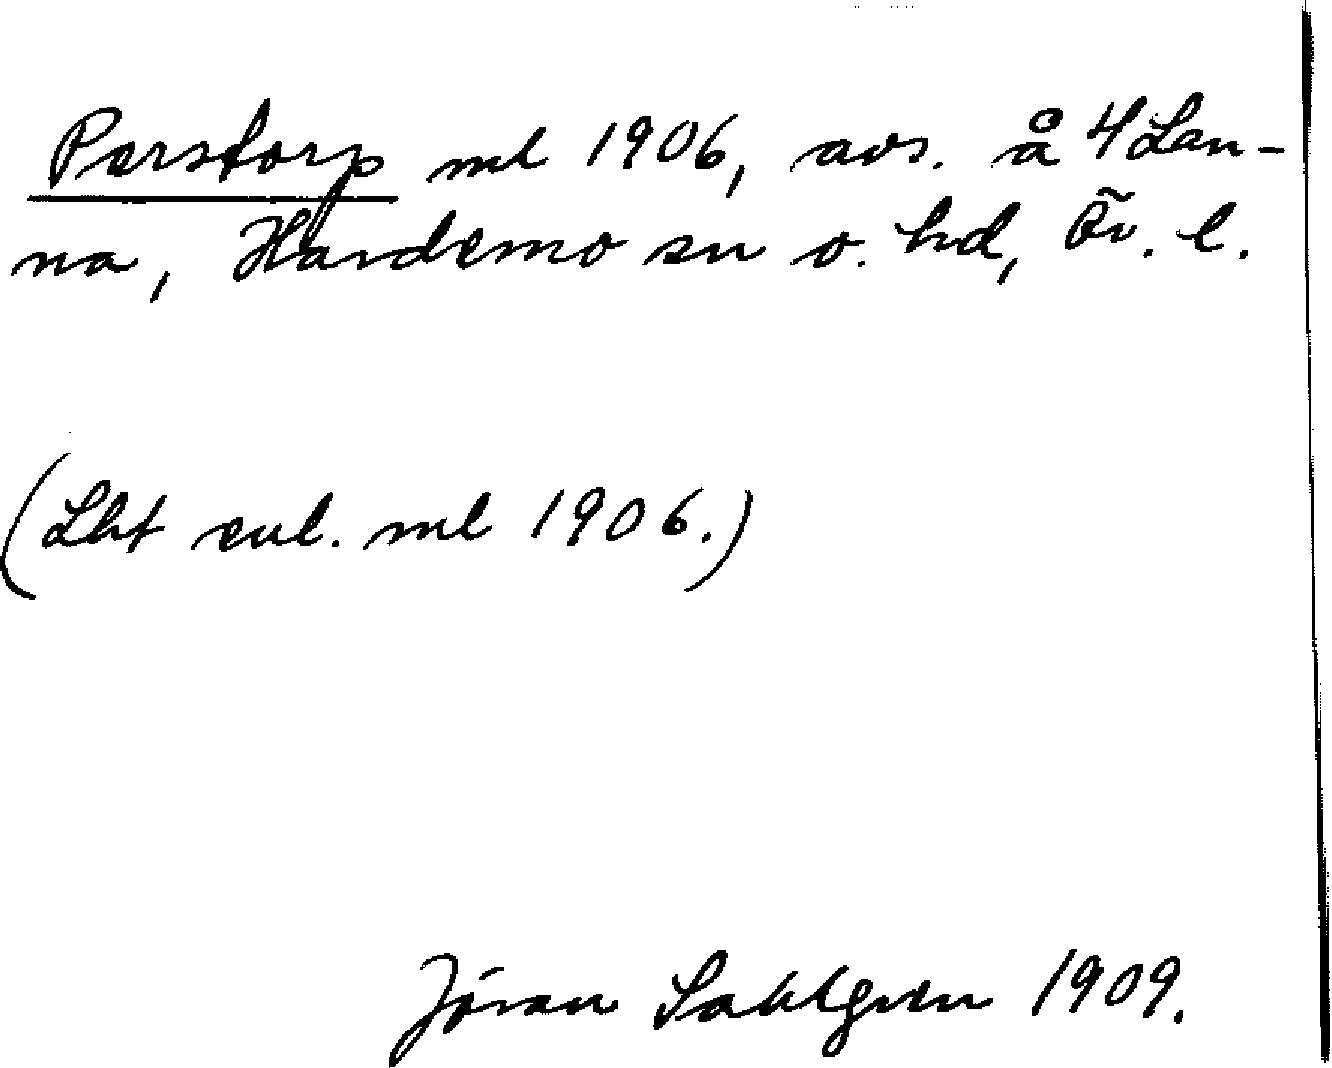 Perstorp ml 1906, avs. å 4 Lan-
na, Hardemo sn o. hd, Öv. l.
(Lht enl. ml 1906.)
Jöran Sahlgren 1909.